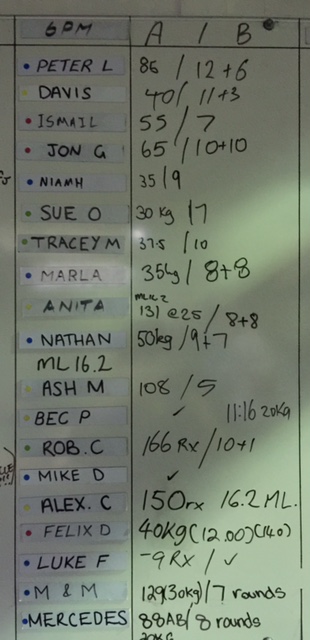 6PM A / B
PETER L 85 / 12+6
DAVIS 40/ 11+3
ISMAIL 55 / 7
JON G 65 / 10+10
NIAMH 35/9
SUE O 30 kg / 7
TRACEY M 37.5 / 10
MARLA 35kg / 8+8
ANITA 131 @25 / 8+8
NATHAN 50kg / 9+7
ML 16.2
ASH M 108 / 5
BEC P ✓ 11:16 20kg
ROB. C 166 Rx / 10+1
MIKE D ✓
ALEX. C 150rx 16.2 ML.
FELIX D 40kg (12.00) (140)
LUKE F -9 RX / ✓
M & M 129(30kg) / 7 rounds
MERCEDES 88AB / 8 rounds